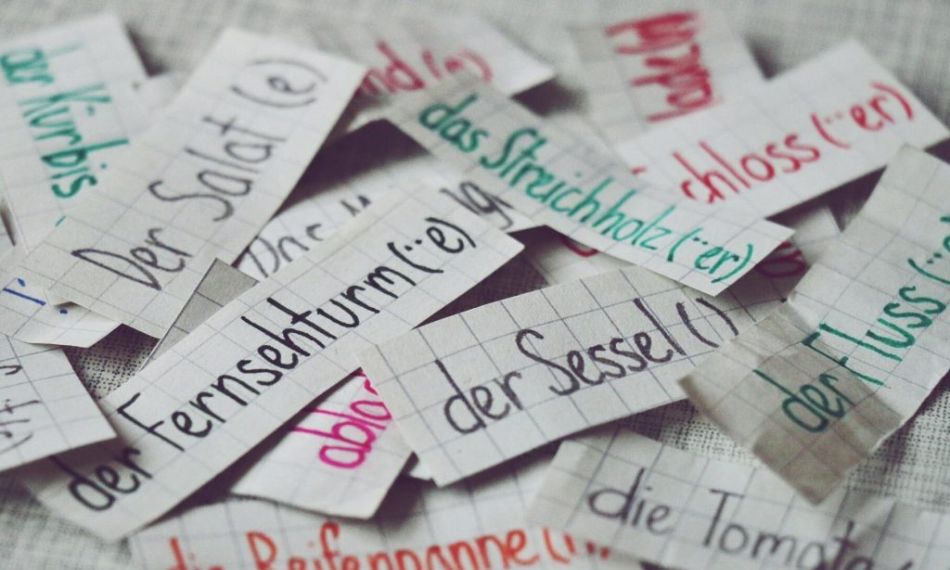 der Kürbis
Der Salat (e)
das Streichholz (¨er)
chloss (¨er)
der Fernsehturm (¨e)
der Sessel ()
der Fluss (¨
ablo
die Tomate
die Reifenpanne (